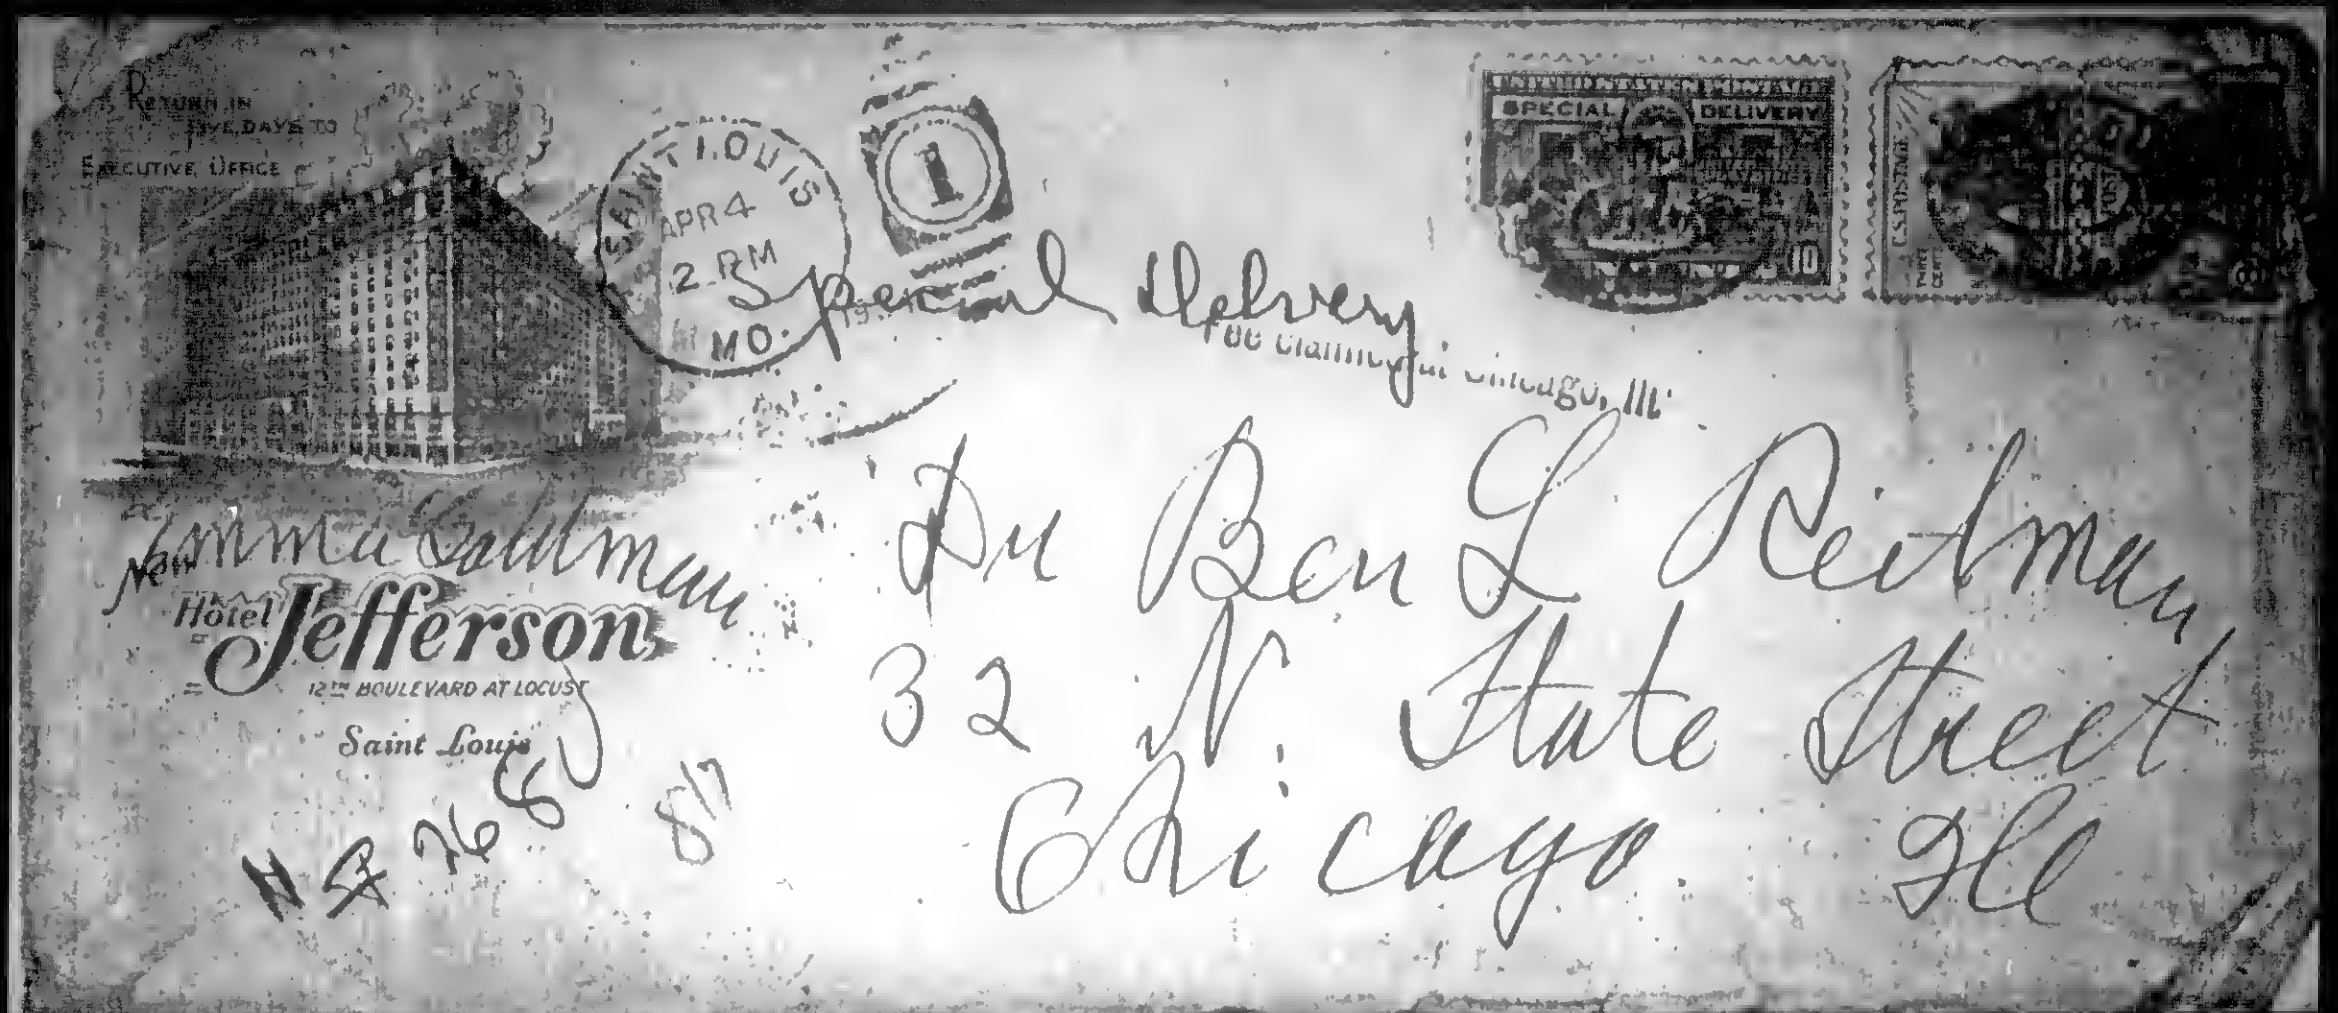 RETURN IN
FIVE DAYS TO
EXECUTIVE OFFICE
SAINT LOUIS
APR 4
2 PM
MO.
1
SPECIAL DELIVERY
10
U.S. POSTAGE
Special Delivery
Chicago, Ill.
Emma Goldman
New
Hotel Jefferson
12TH BOULEVARD AT LOCUST
Saint Louis
Dr Ben L Reitman
32 N. State Street
Chicago Ill
817